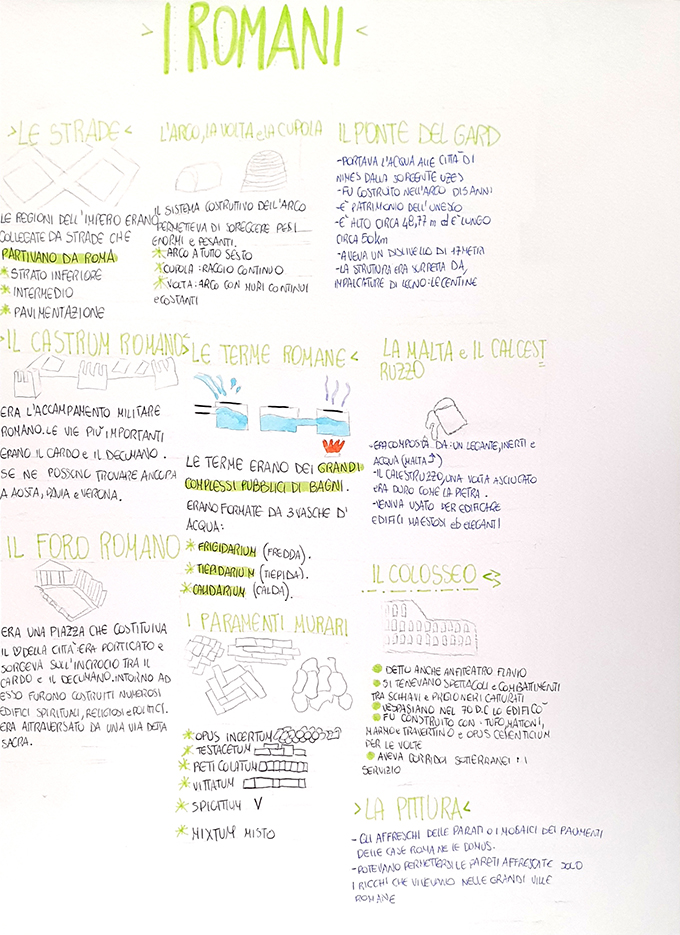 I ROMANI
LE STRADE
LE REGIONI DELL'IMPERO ERANO
COLLEGATE DA STRADE CHE
PARTIVANO DA ROMA
STRATO INFERIORE
INTERMEDIO
PAVIMENTAZIONE
L'ARCO, LA VOLTA e LA CUPOLA
IL SISTEMA COSTRUTIVO DELL'ARCO
PERMETTEVA DI SOREGGERE PESI
ENORMI e PESANTI.
ARCO A TUTO SESTO
CUPOLA: RAGGIO CONTINUO
VOLTA: ARCO CON MURI CONTINUI
e COSTANTI
IL PONTE DEL GARD
-PORTAVA L'ACQUA ALLE CITTÀ DI
NIMES DALLA SORGENTE UZES
-FU COSTRUITO NELL'ARCO DI 5 ANNI
-È PATRIMONIO DELL'UNESCO
-È ALTO CIRCA 48,77 m ed È LUNGO
CIRCA 50 km
-AVEVA UN DISLIVELLO DI 17 METRI
-LA STRUTURA ERA SORRETTA DA
IMPALCATURE DI LEGNO: LE CENTINE
IL CASTRUM ROMANO
ERA L'ACCAMPAMENTO MILITARE
ROMANO. LE VIE PIÙ IMPORTANTI
ERANO IL CARDO e IL DECUMANO.
SE NE POSSONO TROVARE ANCORA
A AOSTA, PAVIA e VERONA.
LE TERME ROMANE
LE TERME ERANO DEI GRANDI
COMPLESSI PUBBLICI DI BAGNI.
ERANO FORMATE DA 3 VASCHE D'
ACQUA:
FRIGIDARIUM (FREDDA).
TIEPIDARIUM (TIEPIDA).
CALIDARIUM (CALDA).
LA MALTA e IL CALCEST
RUZZO
-ERA COMPOSTA DA: UN LEGANTE, INERTI e
ACQUA (MALTA ↑)
-IL CALESTRUZZO, UNA VOLTA ASCIUGATO
ERA DURO COME LA PIETRA.
-VENIVA USATO PER EDIFICARE
EDIFICI MAESTOSI ED ELEGANTI
IL FORO ROMANO
ERA UNA PIAZZA CHE COSTITUIVA
IL ♡ DELLA CITTÀ ERA PORTICATO e
SORGEVA SULL'INCROCIO TRA IL
CARDO e IL DECUMANO. INTORNO AD
ESSO FURONO COSTRUITI NUMEROSI
EDIFICI SPIRITUALI, RELIGIOSI e POLITICI.
ERA ATTRAVERSATO DA UNA VIA DETTA
SACRA.
I PARAMENTI MURARI
OPUS INCERTUM
TESTACETUM
RETICOLATUM
VITTATUM
SPICATIUM
MIXTUM MISTO
IL COLOSSEO
DETTO ANCHE ANFITEATRO FLAVIO
SI TENEVANO SPETTACOLI e COMBATTIMENTI
TRA SCHIAVI e PRIGIONERI CATTURATI
VESPASIANO NEL 70 D.C LO EDIFICÒ
FU COSTRUITO CON: TUFO, MATTONI,
MARMO e TRAVERTINO e OPUS CEMENTICIUM
PER LE VOLTE
AVEVA CORRIDOI SOTTERRANEI DI
SERVIZIO
LA PITTURA
- GLI AFFRESCHI DELLE PARATI O I MOSAICI DEI PAVIMENTI
DELLE CASE ROMANE LE DOMUS.
-POTEVANO PERMETTERSI LE PARETI AFFRESCATE SOLO
I RICCHI CHE VIVEVANO NELLE GRANDI VILLE
ROMANE